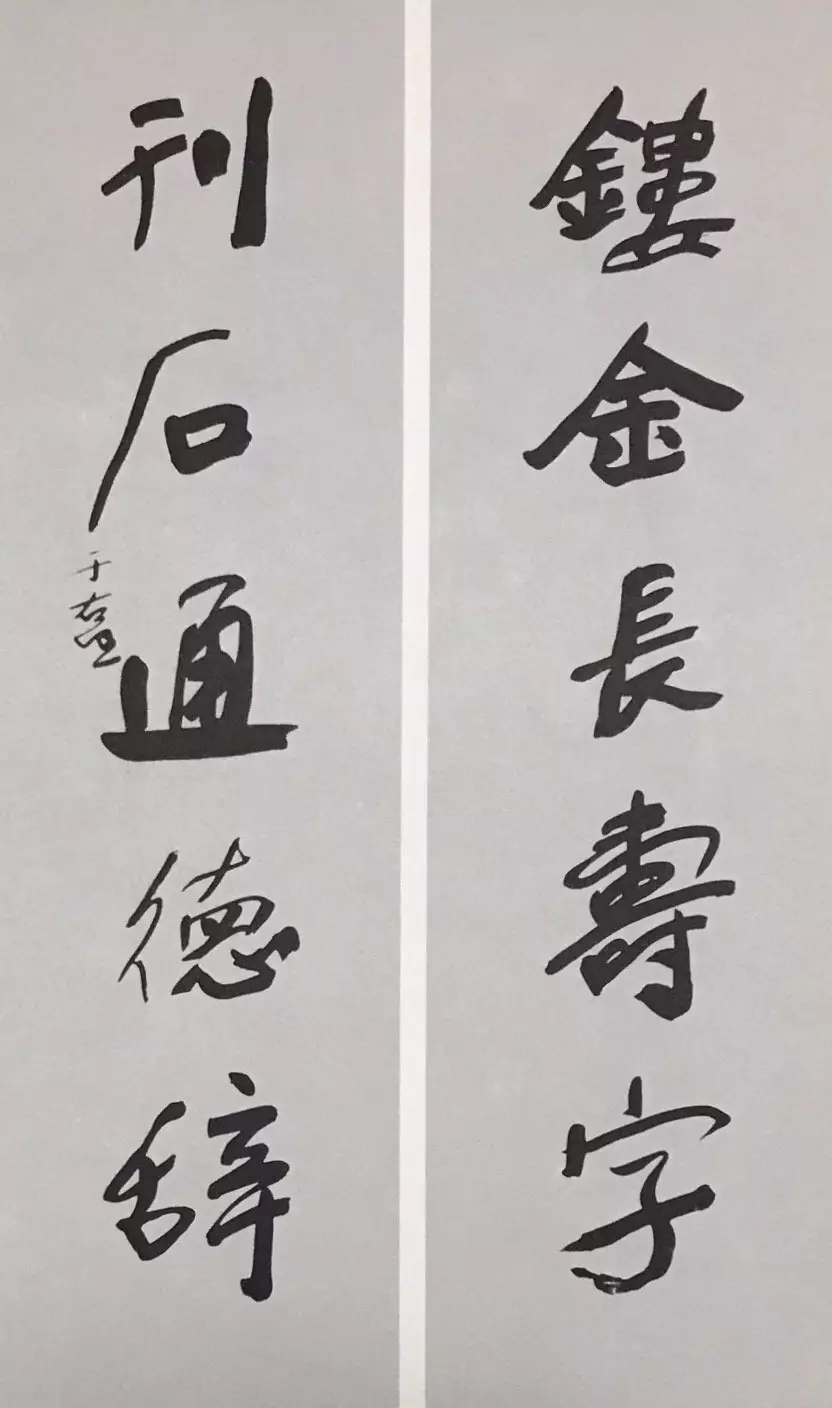 鏤金長壽字
刊石通德辞
于右任